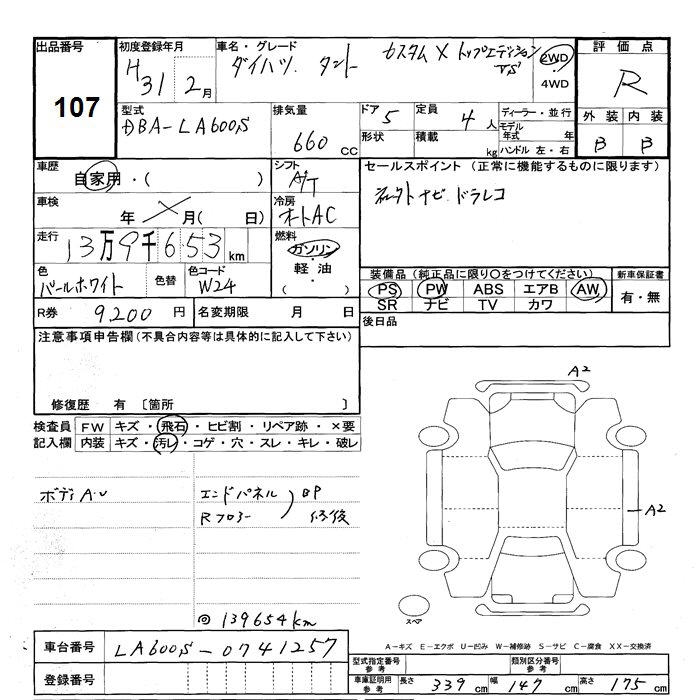 出品番号
107
初度登録年月
H31 2月
車名・グレード
ダイハツ タント カスタム X トップエディション
VS
2WD
4WD
評価点
R
外装 内装
B B
型式
DBA-LA600S
排気量
660 cc
ドア 5
形状
定員 4 人
積載 kg
ディーラー・並行
モデル年式 年
ハンドル 左・右
車歴
自家用・( )
シフト
A/T
セールスポイント (正常に機能するものに限ります)
ナビ ドラレコ
車検
年 月( 日)
冷房
オートAC
走行
13万9千653 km
燃料
ガソリン
・
軽油
・
( )
色
パールホワイト
色替
色コード
W24
装備品(純正品に限り○をつけてください)
PS PW ABS エアB AW
SR ナビ TV カワ
新車保証書
有・無
R券 9200 円
名変期限 月 日
後日品
注意事項申告欄(不具合内容等は具体的に記入して下さい)
修復歴 有 〔箇所 〕
検査員記入欄
FW キズ・飛石・ヒビ割・リペア跡・×要
内装 キズ・汚レ・コゲ・穴・スレ・キレ・破レ
ボディ A.U
エンドパネル
Rフロアー
BP
修復
139654km
A2
A2
スペア
車台番号 LA600S-0741257
登録番号
A-キズ E-エクボ U-凹み W-補修跡 S-サビ C-腐食 XX-交換済
型式指定番号 参考
類別区分番号 参考
車庫証明用 参考
長さ 339 cm 幅 147 cm 高さ 175 cm